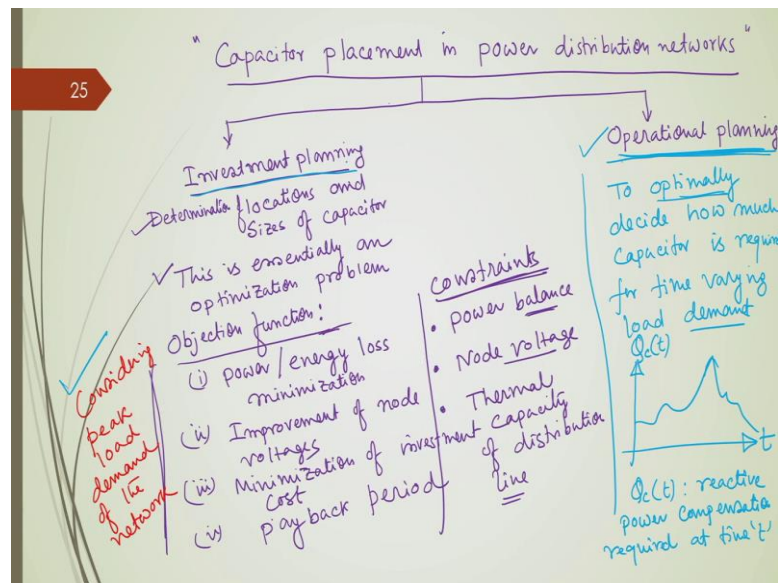 25
"Capacitor placement in power distribution networks"
Investment planning
Determination of locations and
sizes of capacitor
This is essentially an
optimization problem
Objection function:
(i) power/energy loss
minimization
(ii) Improvement of node
voltages
(iii) Minimization of investment
cost
(iv) payback period
Considering
peak
load
demand
of the
network
constraints
• power balance
• Node voltage
• Thermal
capacity
of distribution
line
Operational planning
To optimally
decide how much
capacitor is requi
for time varying
load demand
Qc(t)
t
Qc(t): reactive
power compensatio
required at time 't'